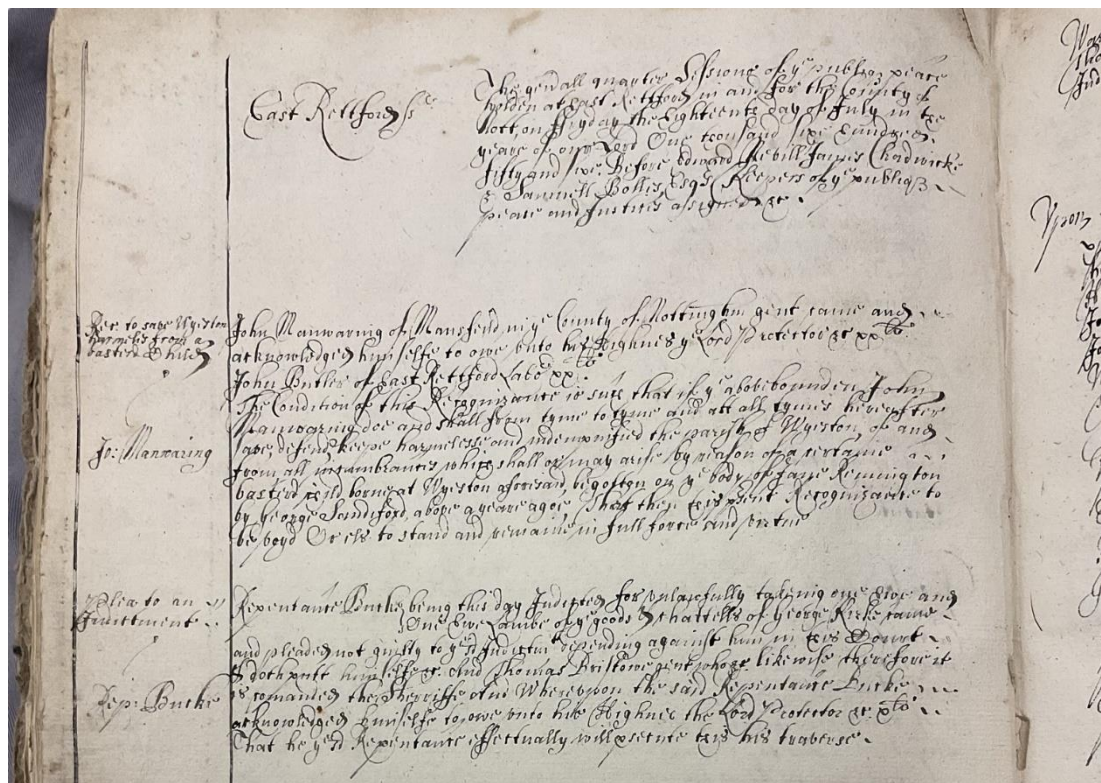 East Rettford ss
The genall quarter Sessions of ye publiq peace
holden at East Rettford in and for the County of
Nott, on ffryday the Eighteenth day of July in the
yeare of our Lord One thousand sixe hundred
fifty and sixe. Before Edward Nevill James Chadwicke
& Samuell Bolles, Esqs Keepers of ye publiq
peace and Justices assigned &c.
Rec. to save Wyeston
harmeles from a
basterd Child
John Manwaring of Mansfeild, in ye County of Nottinghm gent came and
acknowledged himselfe to owe vnto his Highnes ye Lord Protector &c xxlb
John Butler of East Rettford Labor xxlb
Jo: Manwaring
The Condicon of this Recognizance is such that if ye abovebounden John
Manwaring doe and shall from tyme to tyme and att all tymes hereafter
save defend, keepe harmelesse and indempnified the parish of Wyeston, of and
from all incumbrances which shall or may arise by reason of a certaine
basterd child borne at Wyeston aforesaid, begotten on ye body of Jane Remington
by George Sandiford, above a yeare agoe That then this psent Recognizance to
be voyd Or els to stand and remaine in full force and virtue
Plea to an
Indictment
Repentance Bucke being this day Indicted for vnlawfully takeing one Ewe and
One Ewe Lambe of ye goods & chattells of George Kirke came
and pleaded not guilty to ye sd Indictmt depending against him in this Court
& doth putt himselfe &c. And Thomas Bristowe gent who &c likewise therefore it
Rep: Bucke
is comanded the Sherriffe &c Wherevpon the said Repentance Bucke
acknowledged himselfe to owe vnto his Highnes the Lord Protector &c xlb
That he ye sd Repentance effectually will psecute this his traverse.